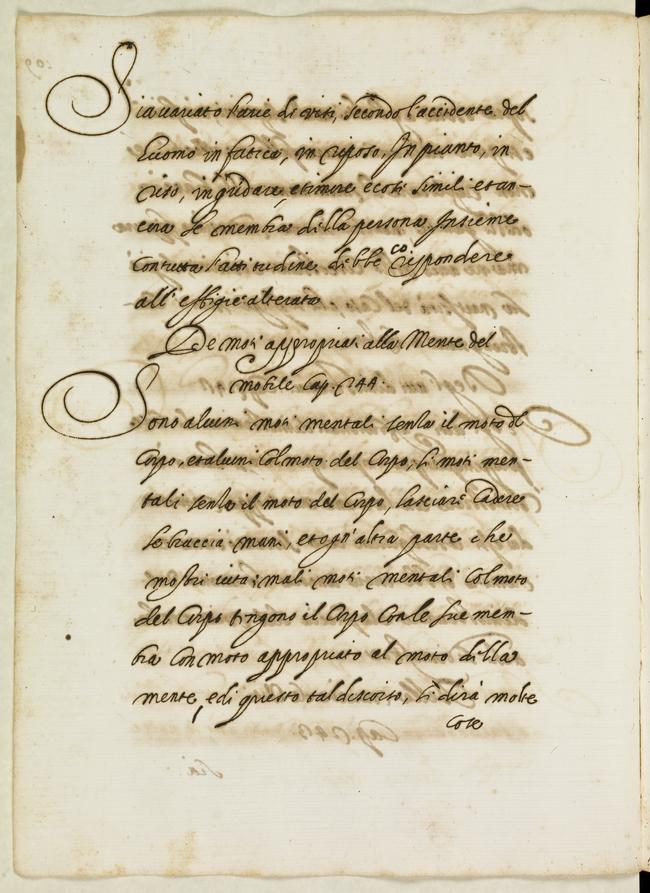 Sia variato l'arie di visi, secondo l'accidente del
l'uomo in fatica, in riposo, In pianto, in
riso, in gridare, e timore e cosi simili et an-
cora le membra della persona Insieme
con tutta l'attitudine debbe co rispondere
all'effigie alterata
De moti appropriati alla Mente del
mobile Cap. 244.
Sono alcuni moti mentali senza il moto dl
Corpo, et alcuni Col moto del Corpo, li moti men-
tali senza il moto del Corpo, lasciare Cadere
le braccia mani, et ogn'altra parte che
mostri vita; mali moti mentali Col moto
del Corpo tengono il Corpo Con le sue mem-
bra Con moto appropriato al moto della
mente, e di questo tal discorso, si dirà molte
cose